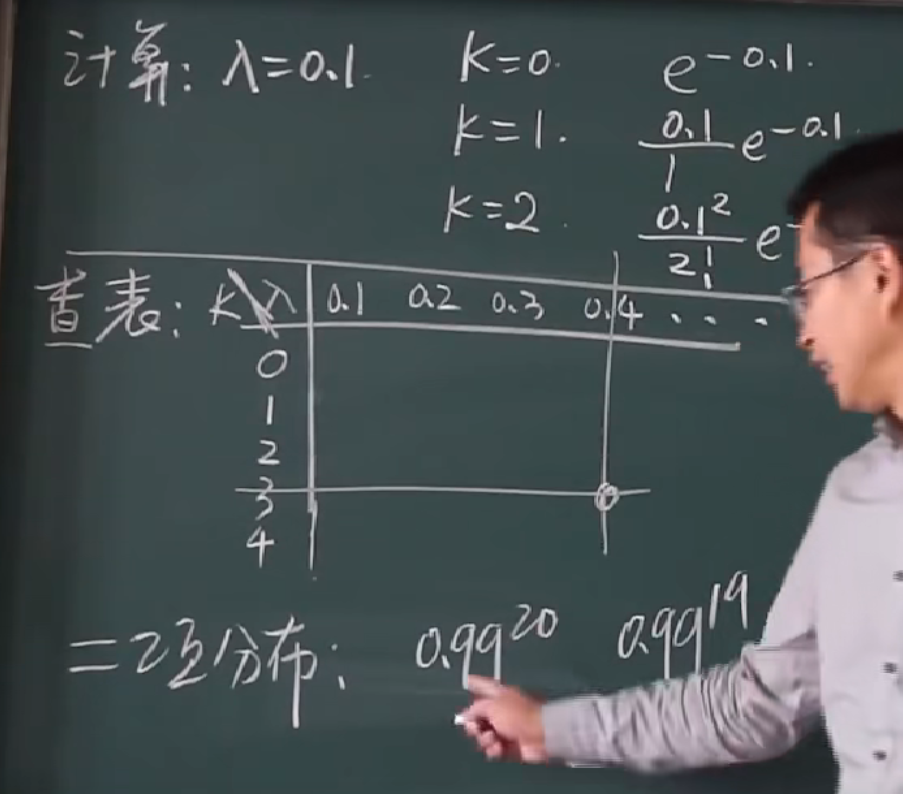 计算: λ=0.1. K=0. e^-0.1.
K=1. 0.1/1 e^-0.1.
K=2. 0.1²/2! e^-
查表: K\λ 0.1 0.2 0.3 0.4 . . .
0
1
2
3
4
二项分布: 0.99^20 0.99^19